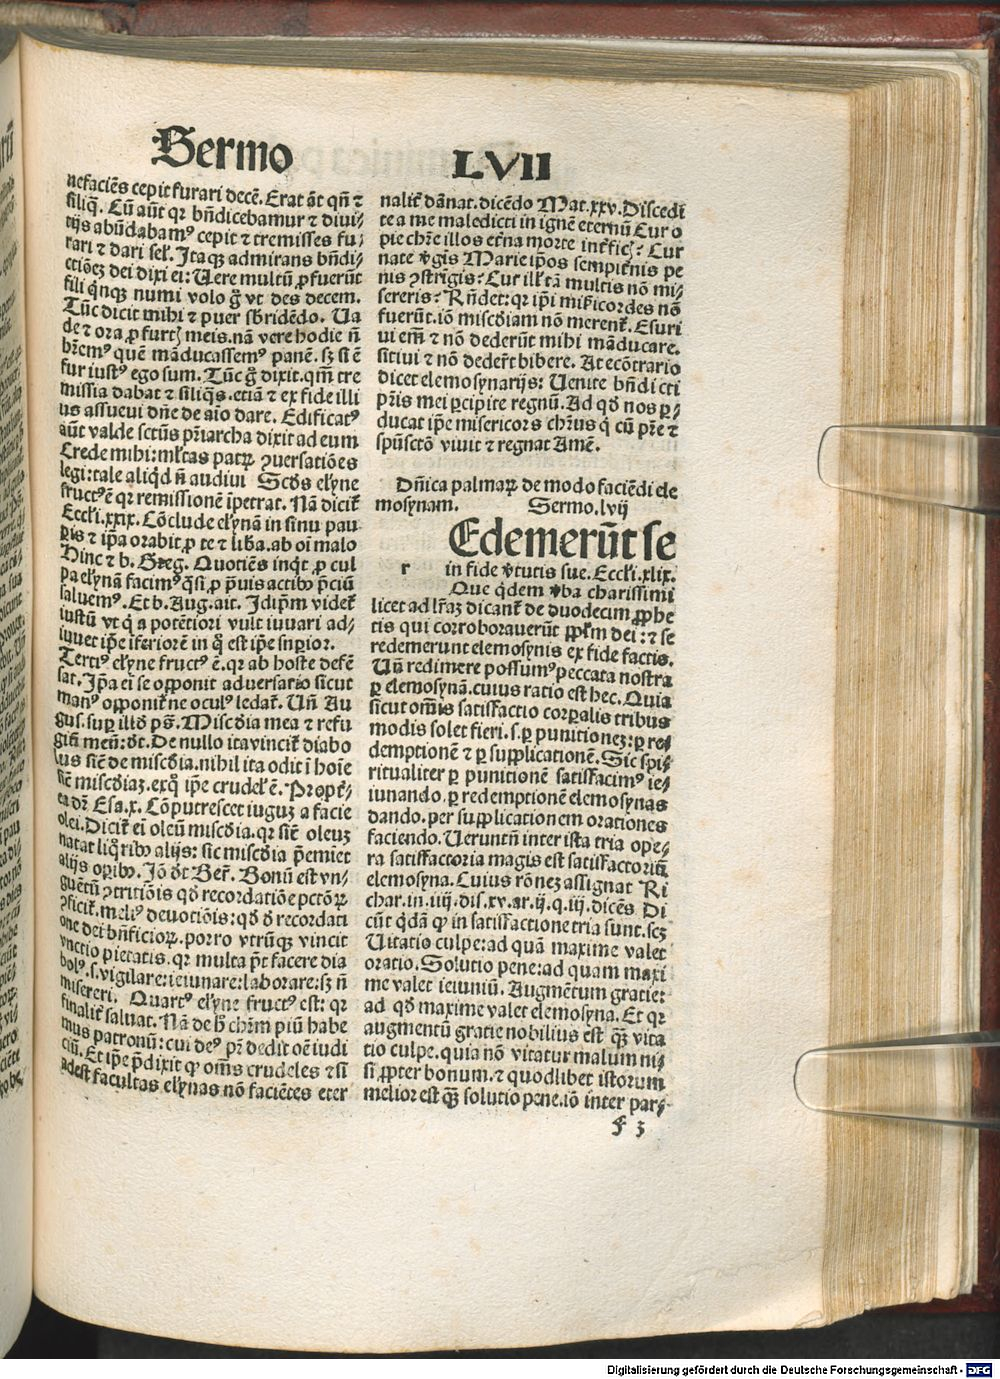 Sermo LVII
nefaciẽs cepit furari decẽ. Erat ãt qñ ⁊
siliq̃. Cũ aũt qr bñdicebamur ⁊ diui⸗
tijs abũdabamꝰ cepit ⁊ tremisses fu⸗
rari ⁊ dari sel̃. Itaqꝫ admirans bñdi⸗
ctiõeꝫ dei dixi ei: Uere multũ ꝓfuerũt
fili q̃nqꝫ numi volo g̃ vt des decem.
Tũc dicit mihi ⁊ puer sb̃ridẽdo. Ua
de ⁊ ora ꝓ furtꝭ meis. nã vere hodie ñ
hr̃emꝰ quẽ mãducassemꝰ panẽ. sꝫ si ẽ
fur iustꝰ ego sum. Tũc g̃ dixit. qm̃ tre
missia dabat ⁊ siliq̃s. etiã ⁊ ex fide illi
us assueui dñe de aĩo dare. Edificatꝰ
aũt valde sctũs pr̃iarcha dixit ad eum
Crede mihi: ml̃tas patꝝ ꝯuersatiões
legi: tale aliq̃d ñ audiui Scd̃s el̃yne
fructꝰ ẽ qr remissionẽ ĩpetrat. Nã dicit̃
Eccl̃i.xxix. Cõclude el̃ynã in sinu pau
ꝑis ⁊ ip̃a orabit ꝓ te ⁊ lib̃a. ab oĩ malo
Hinc ⁊ b. Greg. Quotiẽs inq̃t ꝓ cul
pa el̃ynã facimꝰ q̃si ꝓ p̃uis actibꝰ p̃ciũ
saluemꝰ. Et b. Aug. ait. Idip̃m videt̃
iustũ vt q̃ a potẽtiori vult iuuari ad⸗
iuuet ip̃e ĩferiorẽ in q̃ est ip̃e suꝑior.
Tertiꝰ el̃yne fructꝰ ẽ. qr ab hoste defẽ
sat. Ip̃a eĩ se opponit aduersario sicut
manꝰ opponit̃ ne oculꝰ ledat̃. Uñ Au
gus. suꝑ illd̃ ps̃. Misc̃dia mea ⁊ refu
giũ meũ: d̃t. De nullo ita vincit̃ diabo
lus sic̃ de misc̃dia. nihil ita odit ĩ hoĩe
sic̃ misc̃diaꝫ. ex q̃ ip̃e crudel̃ ẽ. Propt̃⸗
ea dr̃ Esa.x. Cõputrescet iuguꝫ a facie
olei. Dicit̃ eĩ oleũ misc̃dia. qr sic̃ oleuꝫ
natat liq̃ribꝰ alijs: sic misc̃dia p̃eminet
alijs oꝑibꝰ. Iõ d̃t Ber̃. Bonũ est vn⸗
guẽtũ ꝯtritiõis qd̃ recordatiõe pctõꝝ
ꝯficit̃. meliꝰ deuotiõis: qd̃ d̃ recordati
one dei bñficioꝝ. porro vtrũqꝫ vincit
vnctio pietatis. qr multa p̃t facere dia
bolꝰ. s. vigilare: ieiunare: laborare: sꝫ ñ
misereri. Quartꝰ el̃yne fructꝰ est: qr
finalit̃ saluat. Nã de h̃ chr̃m piũ habe
mus patronũ: cui deꝰ pr̃ dedit oẽ iudi
ciũ. Et ip̃e p̃dixit ꝙ om̃s crudeles ⁊ si
adest facultas el̃ynas nõ faciẽtes eter
nalit̃ dãnat. dicẽdo Mat.xxv. Discedi
te a me maledicti in ignẽ eternũ Cur o
pie chr̃e illos et̃na morte int̃ficꝭ? Cur
nate v̾gis Marie ip̃os sempit̃nis pe
nis ꝯstrĩgis? Cur ill̃ tã multis nõ mi⸗
sereris? Rñdet: qr ip̃i mĩcordes nõ
fuerũt. iõ misc̃diam nõ merent̃. Esuri
ui em̃ ⁊ nõ dederũt mihi mãducare.
sitiui ⁊ nõ dedert̃ bibere. At ecõtrario
dicet elemosynarijs: Uenite bñdicti
pr̃is mei ꝑcipite regnũ. Ad qd̃ nos ꝑ⸗
ducat ip̃e misericors chr̃us q̃ cũ pr̃e ⁊
spũsctõ viuit ⁊ regnat Amẽ.
Dñica palmaꝝ de modo faciẽdi ele
mosynam. Sermo.lvij
r Edemerũt se
in fide v̾tutis sue. Eccl̃i.xlix.
Que q̃dem v̾ba charissimi
licet ad lr̃aꝫ dicant̃ de duodecim ꝓphe
tis qui corroborauerũt ppl̃m dei: ⁊ se
redemerunt elemosynis ex fide factis.
Uñ redimere possumꝰ peccata nostra
ꝑ elemosynã. cuius ratio est hec. Quia
sicut om̃is satisfactio corꝑalis tribus
modis solet fieri. s. ꝑ punitioneꝫ: ꝑ re⸗
demptionẽ ⁊ ꝑ supplicationẽ. Sic spi⸗
ritualiter ꝑ punitionẽ satisfacimꝰ ie⸗
iunando. ꝑ redemptionẽ elemosynas
dando. per supplicationem orationes
faciendo. Ueruntñ inter ista tria ope⸗
ra satisfactoria magis est satisfactoriũ
elemosyna. Cuius rõneꝫ assignat Ri
char. in .iiij. dis. xv. ar. ij. q. iij. dicẽs Di
cũt q̃dã ꝙ in satisfactione tria sunt. scꝫ
Uitatio culpe: ad quã maxime valet
oratio. Solutio pene: ad quam maxi
me valet ieiuniũ. Augmẽtum gratie:
ad qd̃ maxime valet elemosyna. Et qr
augmentũ gratie nobilius est q̃ꝫ vita
tio culpe. quia nõ vitatur malum ni⸗
si ꝓpter bonum. ⁊ quodlibet istorum
melior est q̃ꝫ solutio pene. iõ inter par⸗
f 3
Digitalisierung gefördert durch die Deutsche Forschungsgemeinschaft - DFG